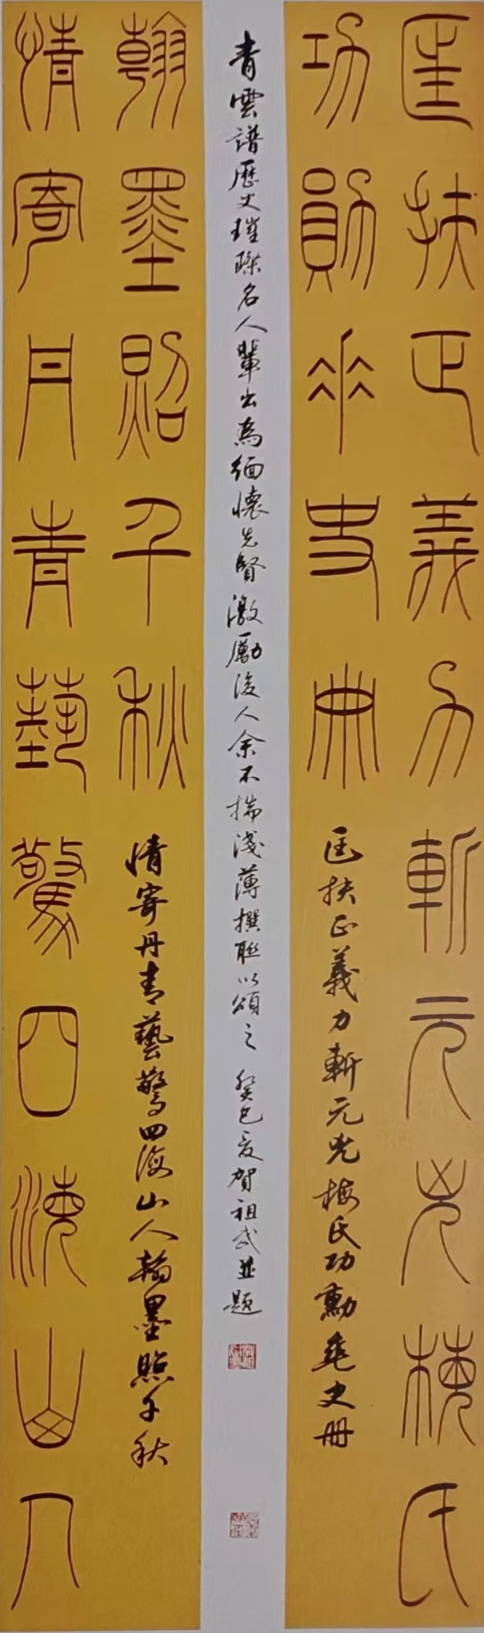 匡扶正義力斬元兇梅氏
功勛垂史冊
匡扶正義力斬元兇梅氏功勳垂史冊
青雲譜歷史璀璨名人輩出為緬懷先賢激勵後人余不揣淺薄撰聯以頌之 癸巳夏賀祖武並題
情寄丹青藝驚四海山人
翰墨照千秋
情寄丹青藝驚四海山人翰墨照千秋